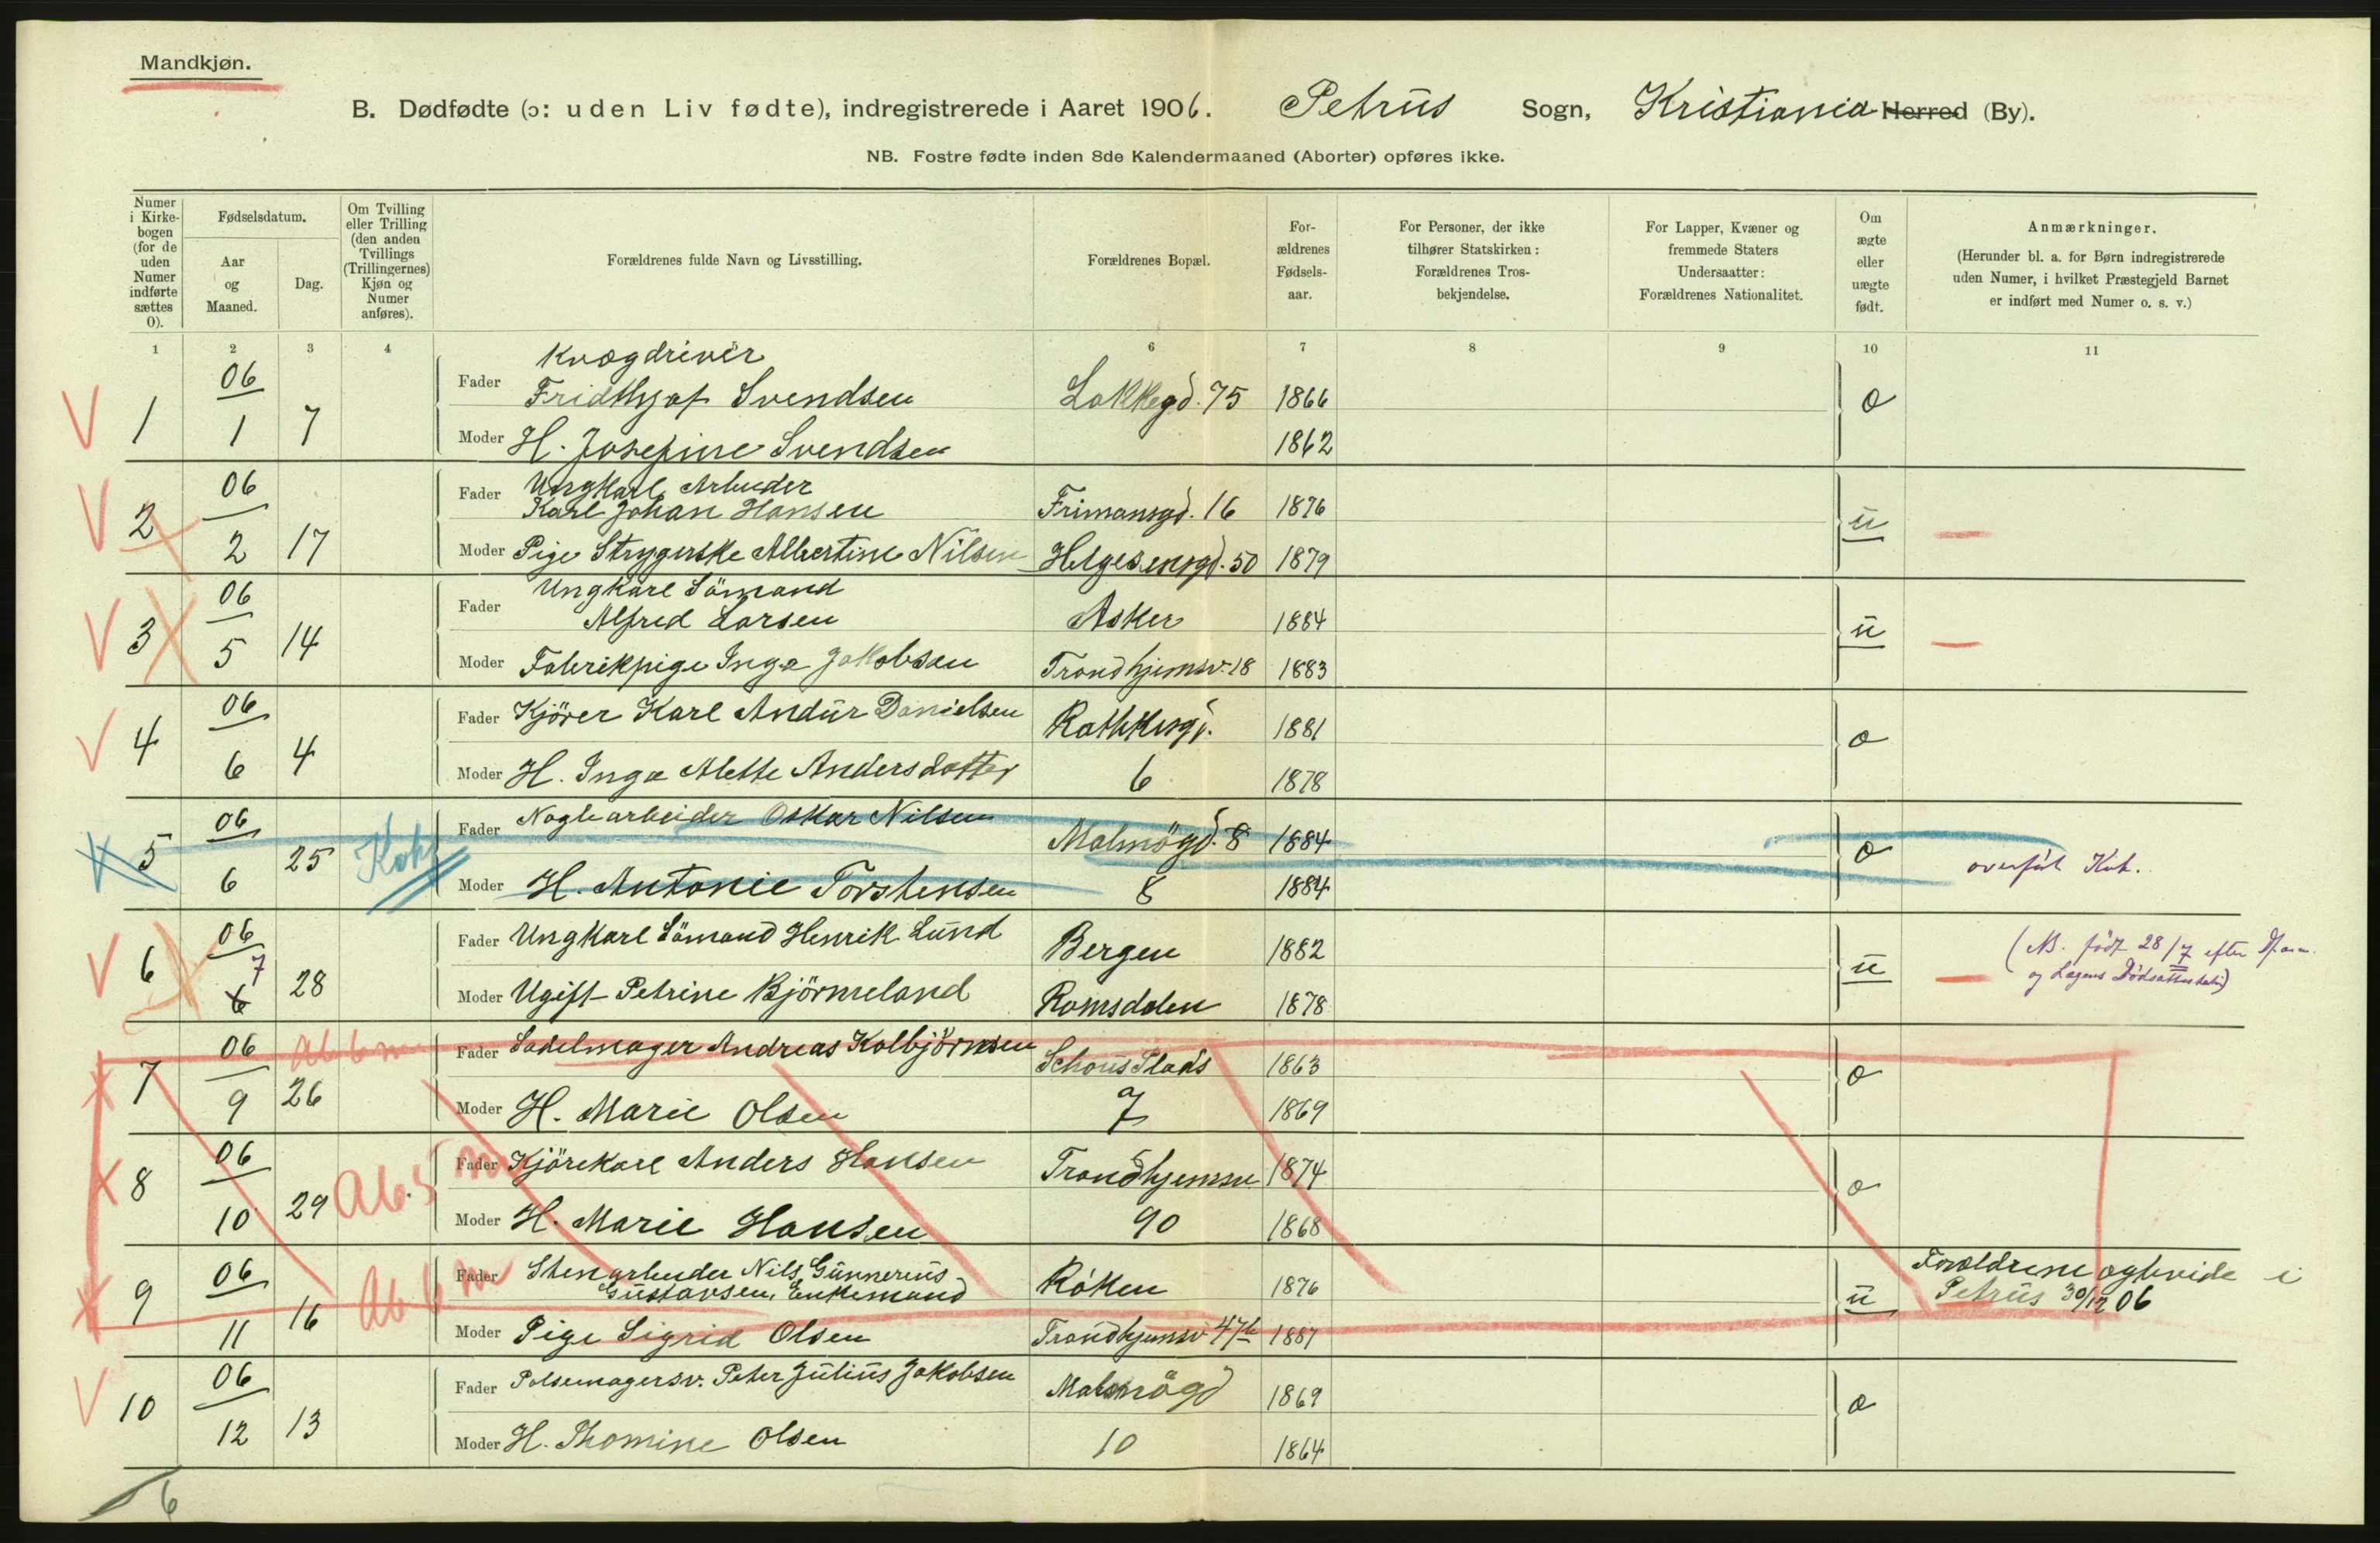 Mandkjøn.
B. Dødfødte (ɔ: uden Liv fødte), indregistrerede i Aaret 1906. Petrus Sogn, Kristiania Herred (By).
NB. Fostre fødte inden 8de Kalendermaaned (Aborter) opføres ikke.
Numer i Kirkebogen (for de uden Numer indførte sættes 0).
Fødselsdatum.
Aar og Maaned.
Dag.
Om Tvilling eller Trilling (den anden Tvillings (Trillingernes) Kjøn og Numer anføres).
Forældrenes fulde Navn og Livsstilling.
Forældrenes Bopæl.
Forældrenes Fødselsaar.
For Personer, der ikke tilhører Statskirken: Forældrenes Trosbekjendelse.
For Lapper, Kvæner og fremmede Staters Undersaatter: Forældrenes Nationalitet.
Om ægte eller uægte født.
Anmærkninger.
(Herunder bl. a. for Børn indregistrerede uden Numer, i hvilket Præstegjeld Barnet er indført med Numer o. s. v.)
1 2 3 4 6 7 8 9 10 11
V 1 06 1 7 Fader Kvægdriver Fridthjof Svendsen Lakkegd. 75 1866 æ
Moder H. Josefine Svendsen 1862
V 2 06 2 17 Fader Ungkarl, Arbeider Karl Johan Hansen Frimansgd. 16 1876 u
Moder Pige Strygerske Albertine Nilsen Helgesensgd. 50 1879
V 3 06 5 14 Fader Ungkarl Sömand Alfred Larsen Asker 1884 u
Moder Fabrikpige Inga Jakobsen Trondhjemsv. 18 1883
V 4 06 6 4 Fader Kjörer Karl Andur Danielsen Rathkesgd. 1881 æ
Moder H. Inga Alette Andersdatter 6 1878
5 06 6 25 Koh Fader Naglearbeider Oskar Nilsen Malmögd. 8 1884 æ
Moder H. Antonie Torstensen 8 1884 overfört Koh.
V 6 06 7 6 28 Fader Ungkarl Sömand Henrik Lund Bergen 1882 u (NB. född 28/7 efter
Moder Ugift Petrine Björmeland Romsdalen 1878 og Lægens Dödsattest)
7 06 9 26 Ab 6 m Fader Sadelmager Andreas Kolbjörnsen Schous Plads 1863 æ
Moder H. Marie Olsen 7 1869
8 06 10 29 Ab. 5 m Fader Kjörekarl Anders Hansen Trondhjemsv 1874 æ
Moder H. Marie Hansen 90 1868
9 06 11 16 Ab 6 m Fader Stenarbeider Nils Gunnerius Gustavsen, Enkemand Röken 1876 u Forældrene ægteviede i
Moder Pige Sigrid Olsen Trondhjemsv 47b 1887 Petrus 30/12 06
V 10 06 12 13 Fader Pølsemagersv. Peter Julius Jakobsen Malmögd 1869 æ
Moder H. Thomine Olsen 10 1864
6